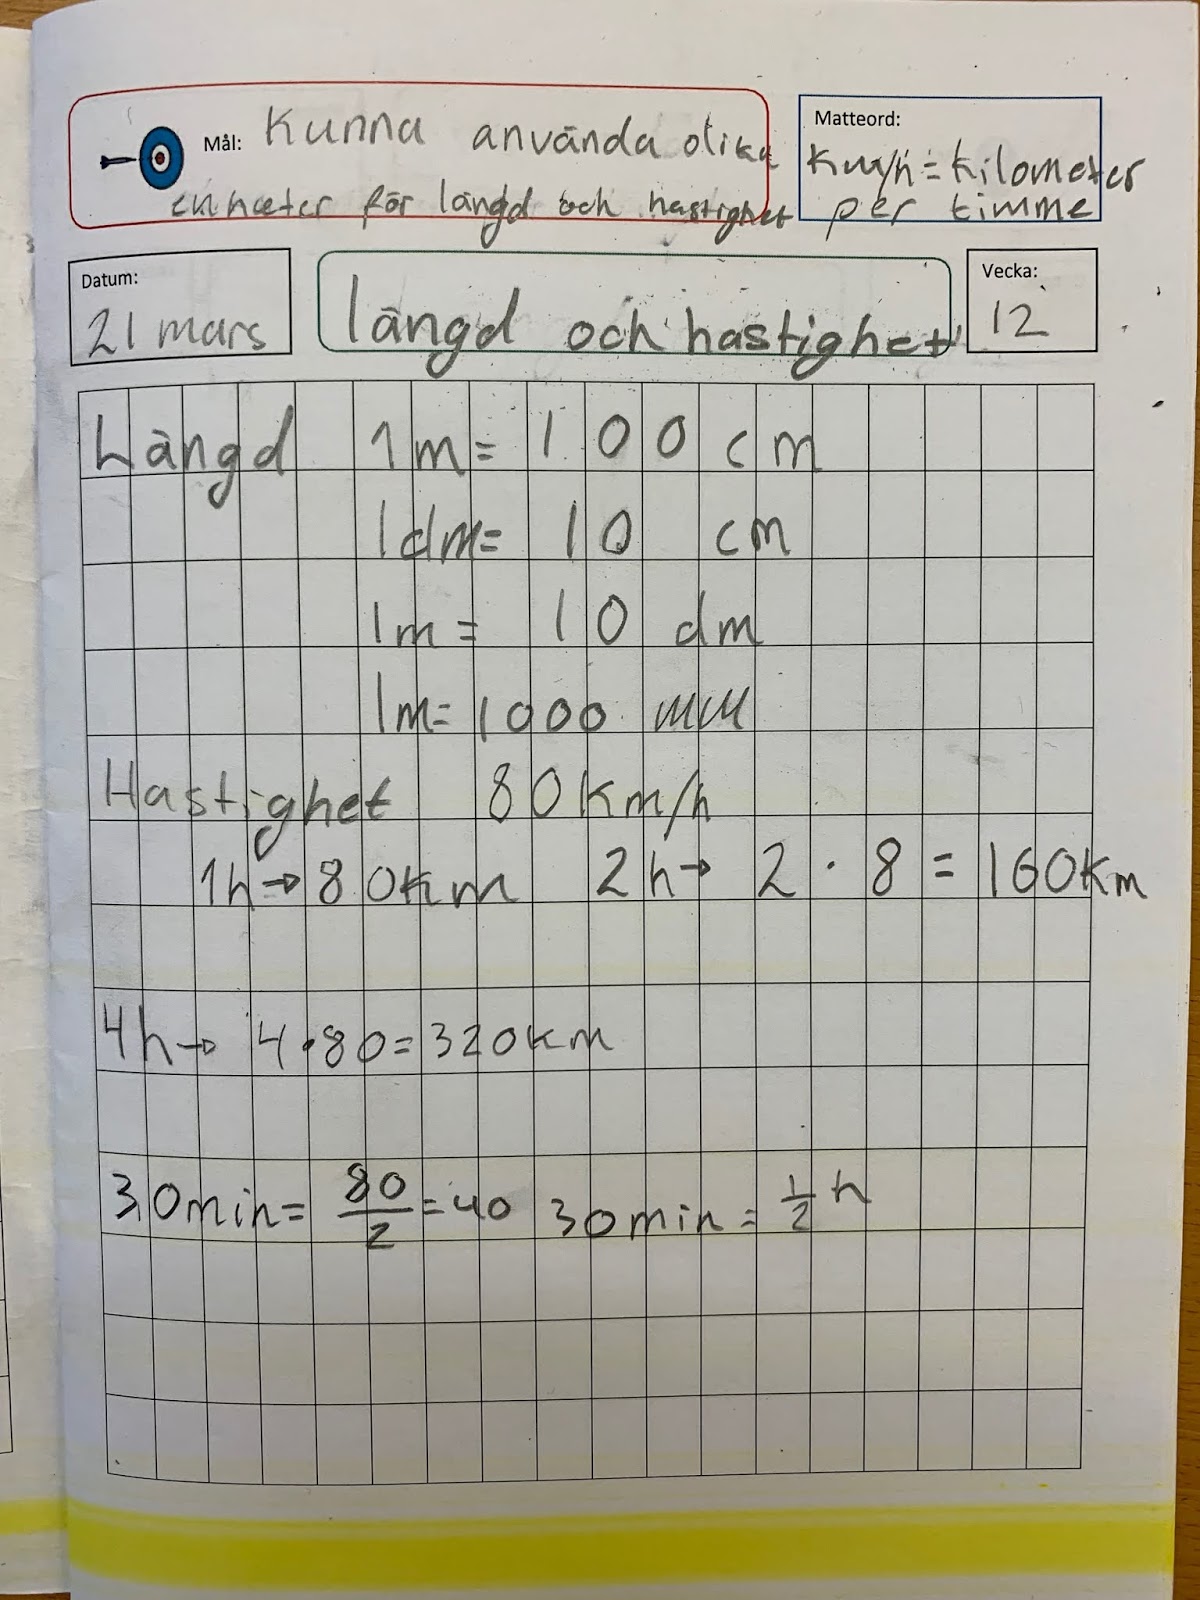 Mål: Kunna använda olika
enheter för längd och hastighet
Matteord:
Km/h = kilometer
per timme
Datum:
21 mars
längd och hastighet
Vecka:
12
Längd 1m = 100 cm
1dm = 10 cm
1m = 10 dm
1m = 1000 mm
Hastighet 80Km/h
1h → 80Km 2h → 2 · 8 = 160Km
4h → 4 · 80 = 320Km
30min = 80/2 = 40 30min = 1/2 h